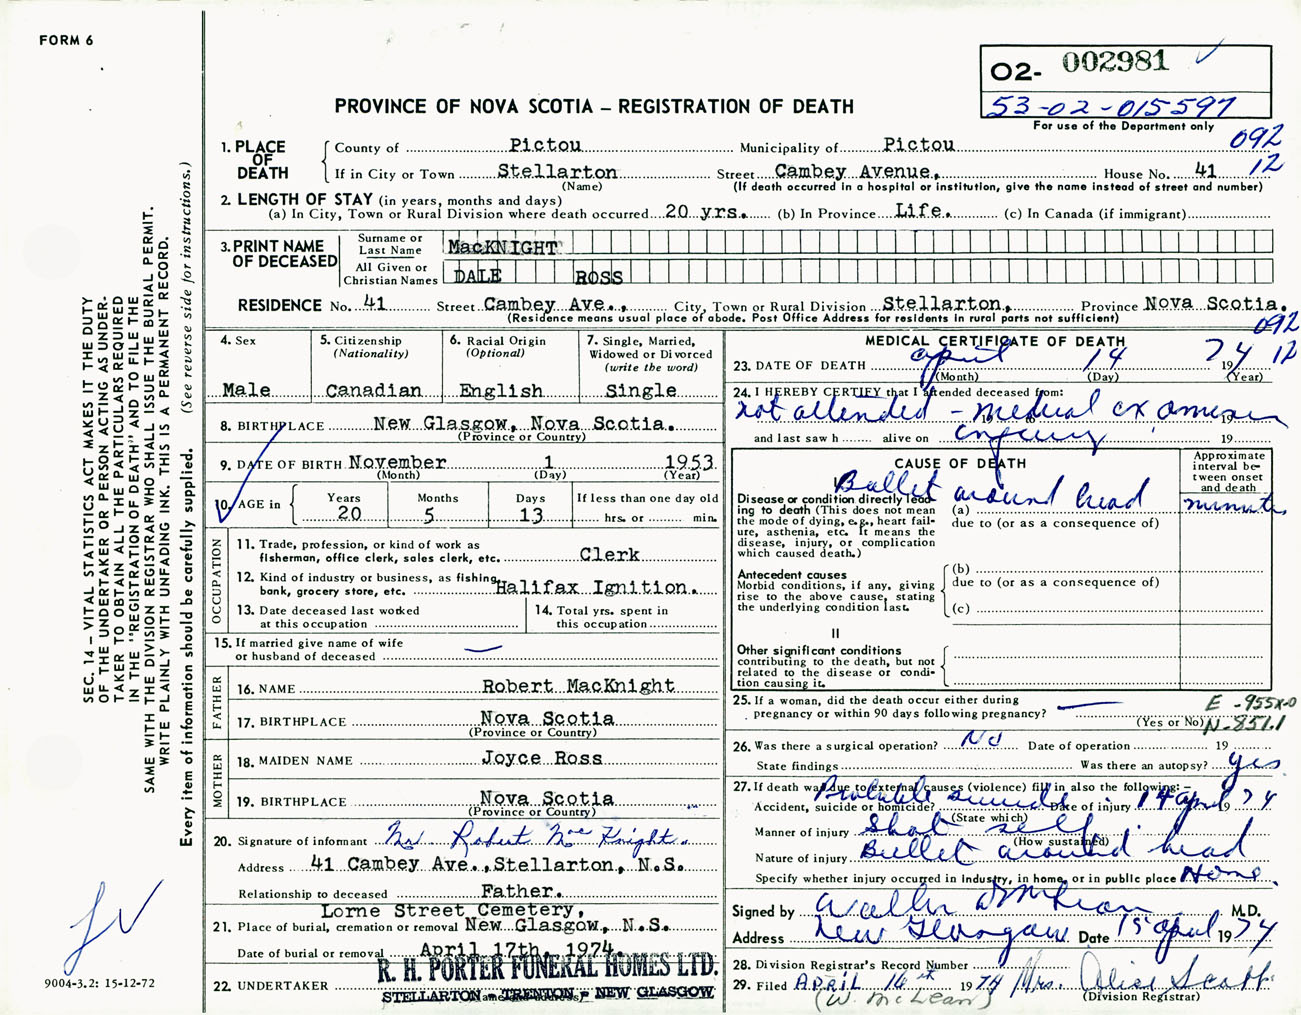 FORM 6
O2- 002981
53-02-015597
For use of the Department only
PROVINCE OF NOVA SCOTIA – REGISTRATION OF DEATH
092
12
1. PLACE OF DEATH
County of Pictou Municipality of Pictou
If in City or Town Stellarton Street Cambey Avenue, House No. 41
(Name) (If death occurred in a hospital or institution, give the name instead of street and number)
2. LENGTH OF STAY (in years, months and days)
(a) In City, Town or Rural Division where death occurred 20 yrs. (b) In Province Life. (c) In Canada (if immigrant)
3. PRINT NAME OF DECEASED
Surname or Last Name MacKNIGHT
All Given or Christian Names DALE ROSS
RESIDENCE No. 41 Street Cambey Ave., City, Town or Rural Division Stellarton, Province Nova Scotia.
(Residence means usual place of abode. Post Office Address for residents in rural parts not sufficient)
092
12
4. Sex
Male
5. Citizenship
(Nationality)
Canadian
6. Racial Origin
(Optional)
English
7. Single, Married,
Widowed or Divorced
(write the word)
Single
8. BIRTHPLACE New Glasgow, Nova Scotia.
(Province or Country)
9. DATE OF BIRTH November 1 1953
(Month) (Day) (Year)
10. AGE in Years 20 Months 5 Days 13 If less than one day old
hrs. or min.
OCCUPATION
11. Trade, profession, or kind of work as
fisherman, office clerk, sales clerk, etc. Clerk
12. Kind of industry or business, as fishing,
bank, grocery store, etc. Halifax Ignition.
13. Date deceased last worked
at this occupation
14. Total yrs. spent in
this occupation
15. If married give name of wife
or husband of deceased —
FATHER
16. NAME Robert MacKnight
17. BIRTHPLACE Nova Scotia
(Province or Country)
MOTHER
18. MAIDEN NAME Joyce Ross
19. BIRTHPLACE Nova Scotia
(Province or Country)
20. Signature of informant Mr. Robert MacKnight.
Address 41 Cambey Ave., Stellarton, N.S.
Relationship to deceased Father.
Lorne Street Cemetery,
21. Place of burial, cremation or removal New Glasgow, N.S.
Date of burial or removal April 17th, 1974.
22. UNDERTAKER R. H. PORTER FUNERAL HOMES LTD.
STELLARTON - TRENTON - NEW GLASGOW
MEDICAL CERTIFICATE OF DEATH
23. DATE OF DEATH April 14 1974
(Month) (Day) (Year)
24. I HEREBY CERTIFY that I attended deceased from:
not attended - medical examiner
and last saw h alive on 19
CAUSE OF DEATH
Approximate
interval be-
tween onset
and death
I
Disease or condition directly lead-
ing to death (This does not mean
the mode of dying, e.g., heart fail-
ure, asthenia, etc. It means the
disease, injury, or complication
which caused death.)
(a) Bullet around head minutes
due to (or as a consequence of)
Antecedent causes
Morbid conditions, if any, giving
rise to the above cause, stating
the underlying condition last.
(b)
due to (or as a consequence of)
(c)
II
Other significant conditions
contributing to the death, but not
related to the disease or condi-
tion causing it.
25. If a woman, did the death occur either during
pregnancy or within 90 days following pregnancy? —
(Yes or No)
E -955x0
N-851.1
26. Was there a surgical operation? No Date of operation 19
State findings Was there an autopsy? yes
27. If death was due to external causes (violence) fill in also the following:-
Accident, suicide or homicide? Probable suicide Date of injury 14 April 1974
(State which)
Manner of injury Shot self
(How sustained)
Nature of injury Bullet around head
Specify whether injury occurred in industry, in home, or in public place Home.
Signed by M.D.
Address New Glasgow. Date 15 April 1974
28. Division Registrar's Record Number
29. Filed APRIL 16th 1974 Mrs. Alice Scott
(W. McLean) (Division Registrar)
SEC. 14 – VITAL STATISTICS ACT MAKES IT THE DUTY
OF THE UNDERTAKER OR PERSON ACTING AS UNDER-
TAKER TO OBTAIN ALL THE PARTICULARS REQUIRED
IN THE "REGISTRATION OF DEATH" AND TO FILE THE
SAME WITH THE DIVISION REGISTRAR WHO SHALL ISSUE THE BURIAL PERMIT.
WRITE PLAINLY WITH UNFADING INK. THIS IS A PERMANENT RECORD.
Every item of information should be carefully supplied. (See reverse side for instructions.)
9004-3.2: 15-12-72